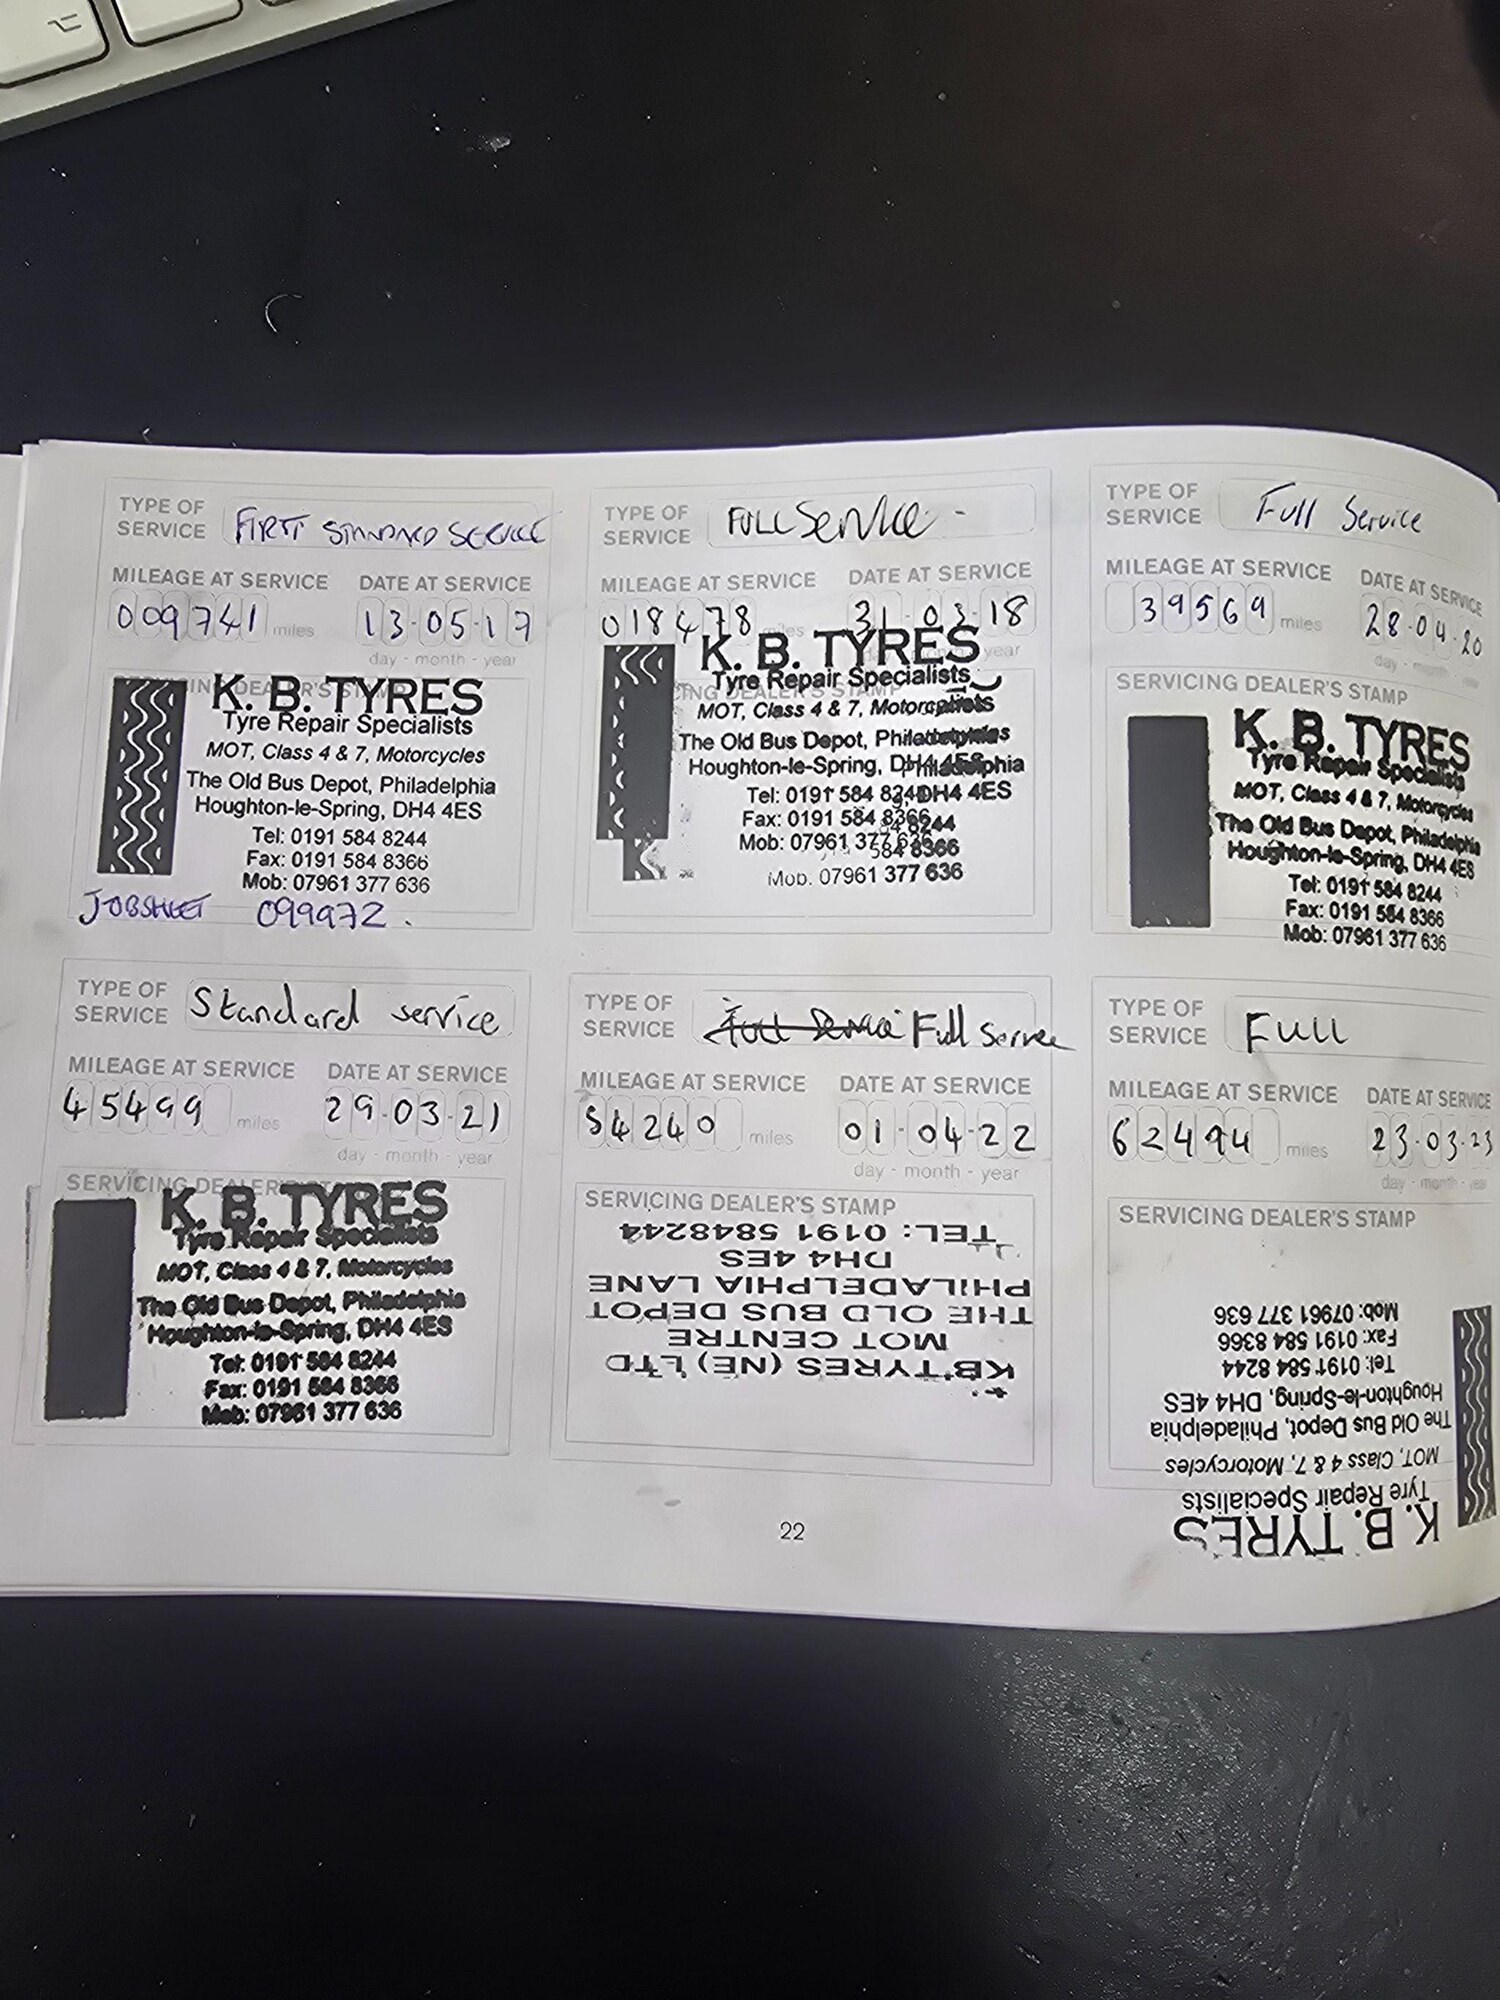 TYPE OF SERVICE FIRST STANDARD SERVICE
MILEAGE AT SERVICE DATE AT SERVICE
009741 miles 13-05-17
day - month - year
K. B. TYRES
Tyre Repair Specialists
MOT, Class 4 & 7, Motorcycles
The Old Bus Depot, Philadelphia
Houghton-le-Spring, DH4 4ES
Tel: 0191 584 8244
Fax: 0191 584 8366
Mob: 07961 377 636
JOBSHEET 099972.
TYPE OF SERVICE FULL Service -
MILEAGE AT SERVICE DATE AT SERVICE
018478 miles 31-03-18
year
K. B. TYRES
Tyre Repair Specialists
MOT, Class 4 & 7,
The Old Bus Depot,
Houghton-le-Spring, DH4 4ES
Tel: 0191 584 8244
Fax: 0191 584 8366
Mob: 07961 377 636
Mob. 07961 377 636
TYPE OF SERVICE Full Service
MILEAGE AT SERVICE DATE AT SERVICE
39569 miles 28-04-20
SERVICING DEALER'S STAMP
K. B. TYRES
Tyre Repair Specialists
MOT, Class 4 & 7, Motorcycles
The Old Bus Depot, Philadelphia
Houghton-le-Spring, DH4 4ES
Tel: 0191 584 8244
Fax: 0191 584 8366
Mob: 07961 377 636
TYPE OF SERVICE Standard service
MILEAGE AT SERVICE DATE AT SERVICE
45499 miles 29-03-21
day - month - year
SERVICING DEALER'S
K. B. TYRES
Tyre Repair Specialists
MOT, Class 4 & 7, Motorcycles
The Old Bus Depot, Philadelphia
Houghton-le-Spring, DH4 4ES
Tel: 0191 584 8244
Fax: 0191 584 8366
Mob: 07961 377 636
TYPE OF SERVICE Full Service
MILEAGE AT SERVICE DATE AT SERVICE
54240 miles 01-04-22
day - month - year
SERVICING DEALER'S STAMP
KB TYRES (NE) LTD
MOT CENTRE
THE OLD BUS DEPOT
PHILADELPHIA LANE
DH4 4ES
TEL: 0191 5848244
TYPE OF SERVICE FULL
MILEAGE AT SERVICE DATE AT SERVICE
62494 miles 23-03-23
day - month - year
SERVICING DEALER'S STAMP
K. B. TYRES
Tyre Repair Specialists
MOT, Class 4 & 7, Motorcycles
The Old Bus Depot, Philadelphia
Houghton-le-Spring, DH4 4ES
Tel: 0191 584 8244
Fax: 0191 584 8366
Mob: 07961 377 636
22